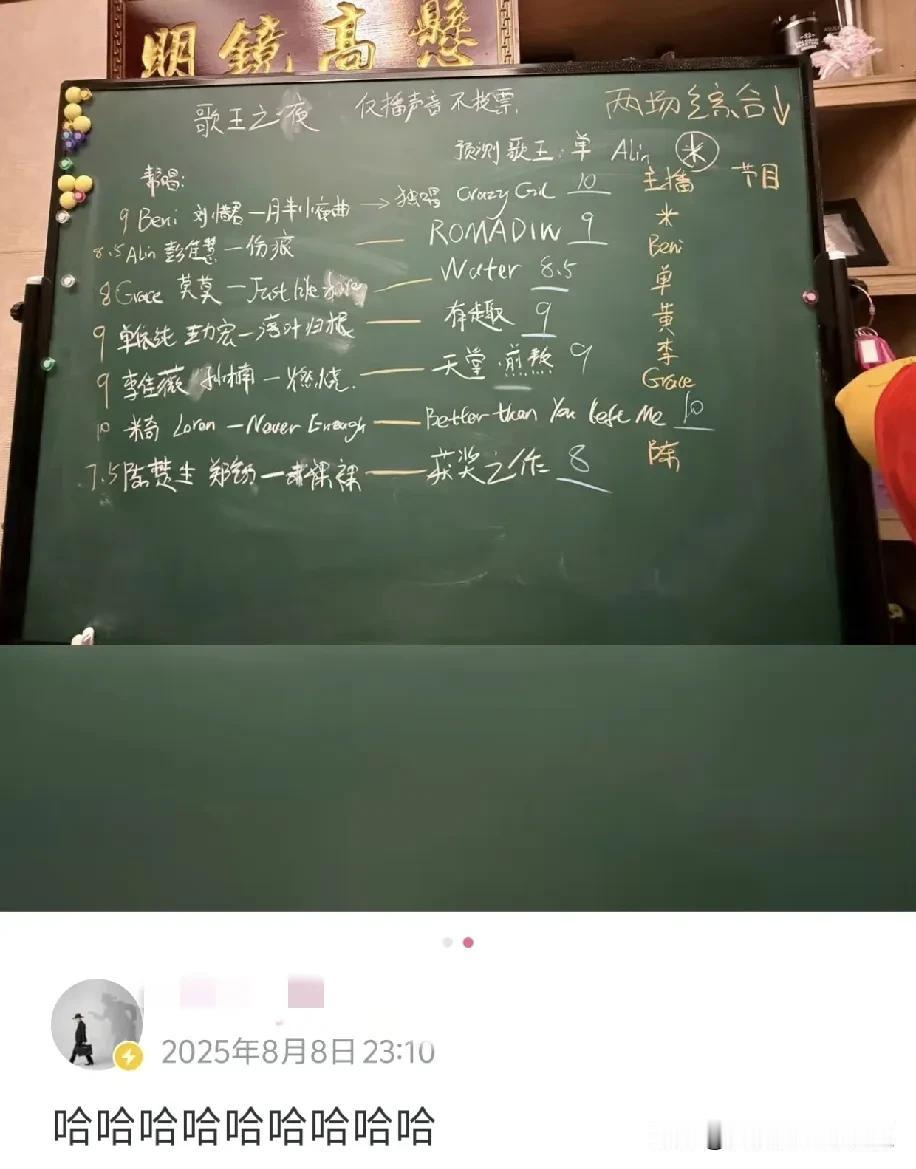 明鏡高懸
歌王之夜 仅播声音不投票 两场综合↓
预测歌王:单 Alin 米
帮唱: 主播 节目
9 Beni 刘惜君一月半小夜曲 → 独唱 Crazy Girl 10 米
8.5 Alin 彭佳慧一伤痕 — ROMADIW 9 Beni
8 Grace 莫莫 — Just like — Water 8.5 单
9 单依纯 王力宏 — 落叶归根 — 有趣 9 黄
9 李佳薇 孙楠 — 燃烧. — 天堂 煎熬 9 李
Grace
10 米奇 Loren — Never Enough — Better than You Left Me 10
7.5 陈楚生 郑钧 — 赤裸裸 — 获奖之作 8 陈
2025年8月8日 23:10
哈哈哈哈哈哈哈哈哈